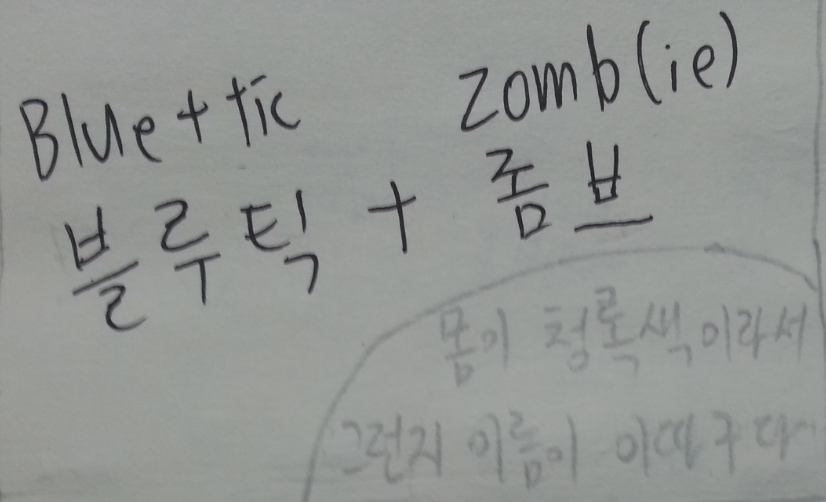 Blue + tic zomb(ie)
블루틱 + 좀브
몸이 청록색이라서
그런지 이름이 이따구다